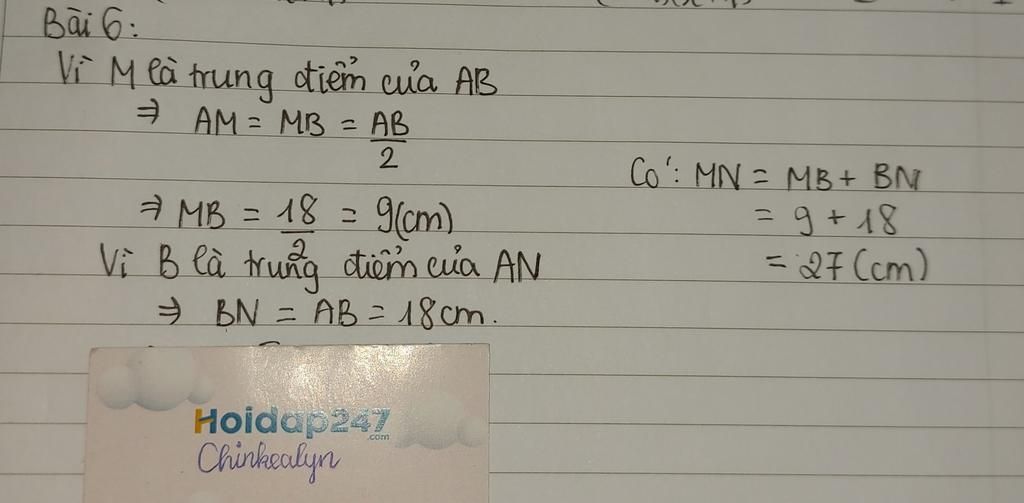 Bài 6:
Vì M là trung điểm của AB
⇒ AM = MB = AB/2
⇒ MB = 18/2 = 9(cm)
Vì B là trung điểm của AN
⇒ BN = AB = 18cm.
Có: MN = MB + BN
= 9 + 18
= 27 (cm)
Hoidap247
.com
Chinkealyn